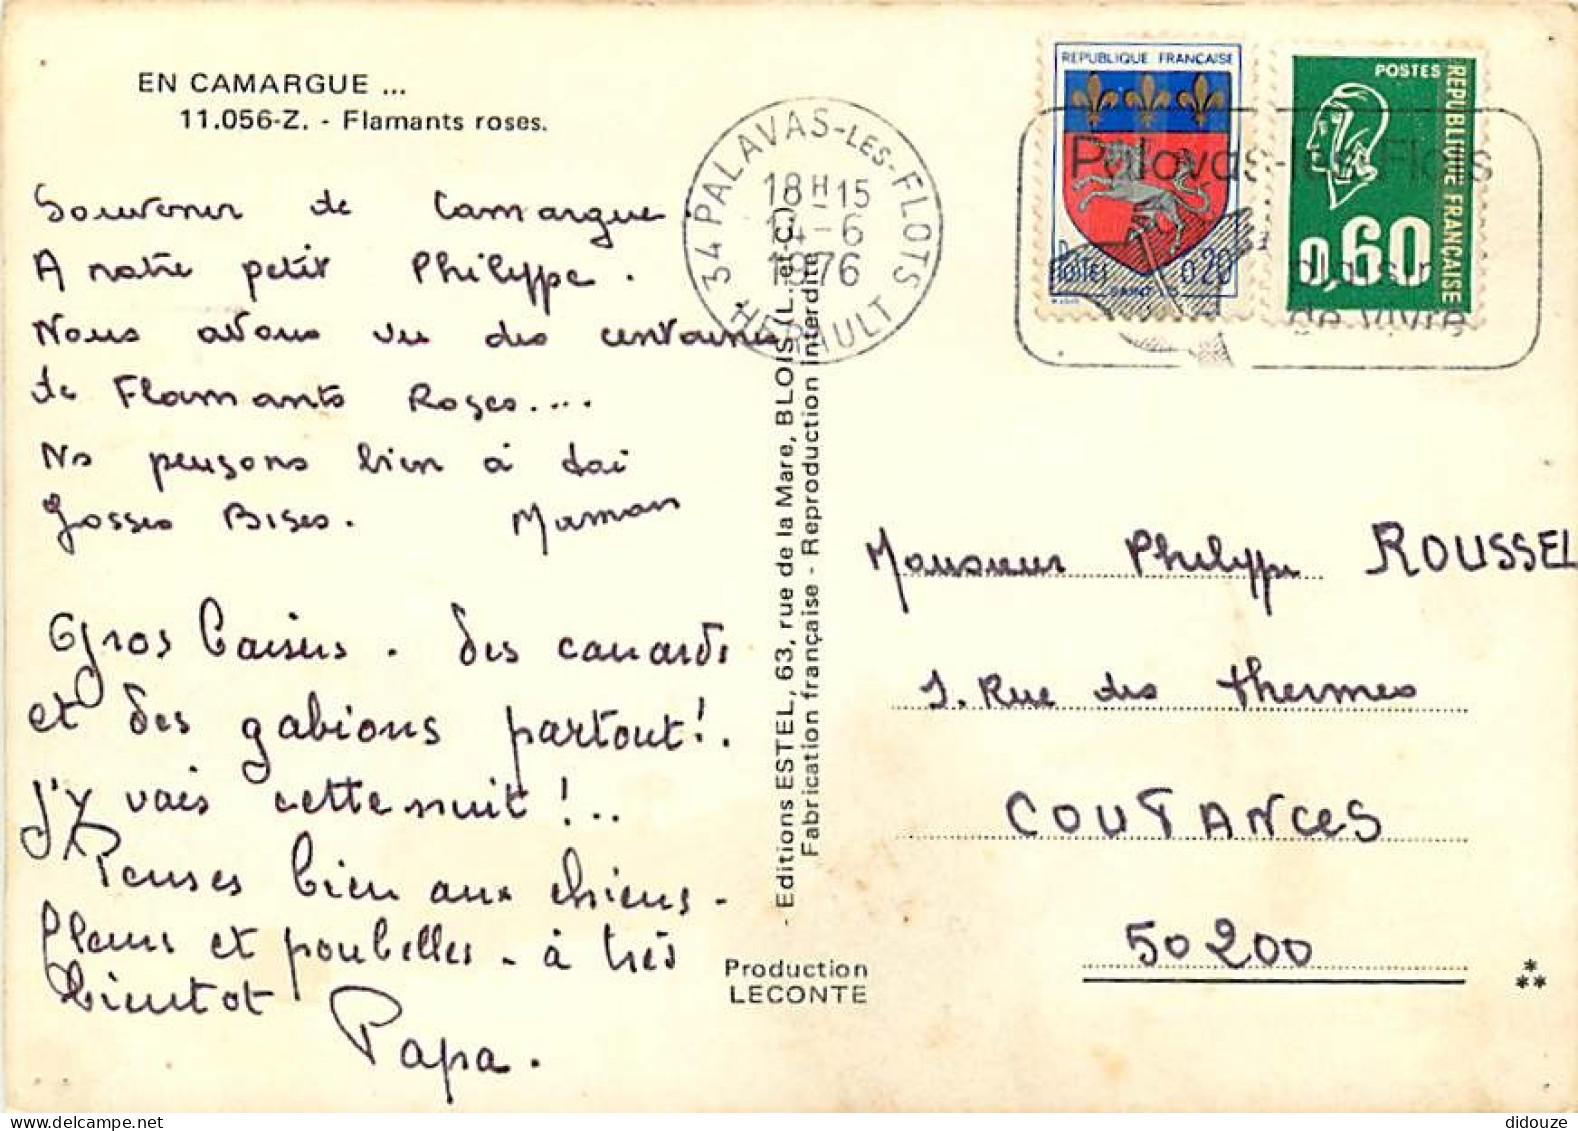 EN CAMARGUE ...
11.056-Z. - Flamants roses.
Souvenir de Camargue
A notre petit Philippe.
Nous avons vu des centaines
de Flamants Roses....
Ns pensons bien à toi
Grosses Bises. Maman
Gros baisers. des canards
et des gabions partout!.
J'y vais cette nuit!..
Penses bien aux chiens -
fleurs et poubelles - à très
bientot
Papa.
- Editions ESTEL, 63, rue de la Mare, BLOIS (L.-et-C.)
Fabrication française - Reproduction interdite
Production
LECONTE
34 PALAVAS-LES-FLOTS
18H-15
14-6
1976
HERAULT
REPUBLIQUE FRANCAISE
POSTES 0,20
SAINT-LO
POSTES
REPUBLIQUE FRANÇAISE
0,60
Palavas-les-Flots
de vivre
Monsieur Philippe ROUSSEL
Rue des thermes
COUTANCES
50200
didouze